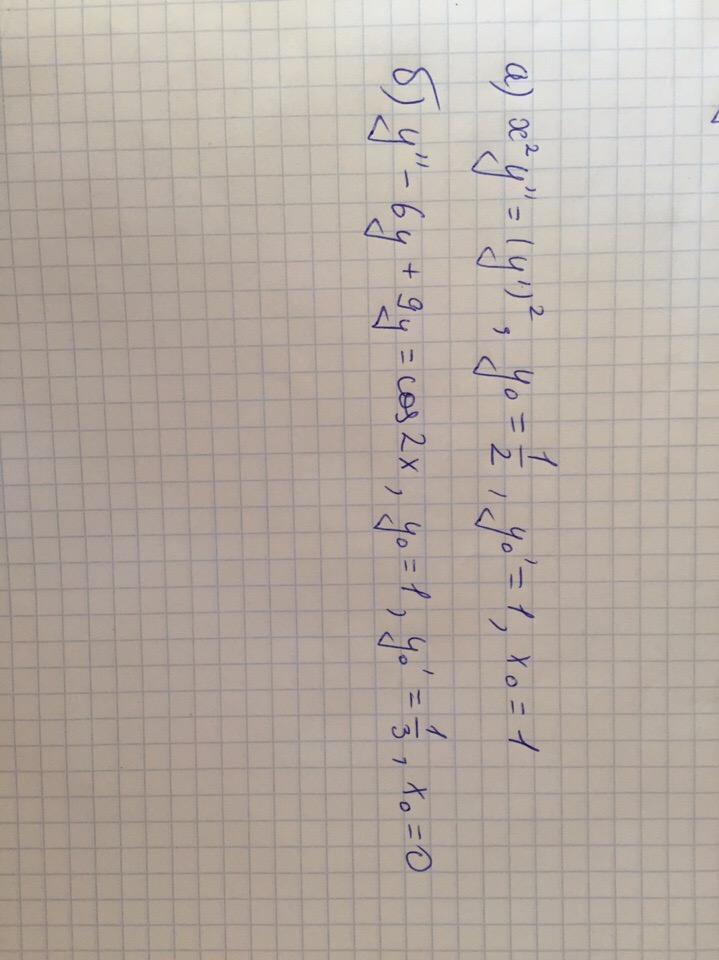 а) x²y'' = (y')², y₀ = 1/2, y₀' = 1, x₀ = 1
б) y'' - 6y + 9y = cos2x, y₀ = 1, y₀' = 1/3, x₀ = 0